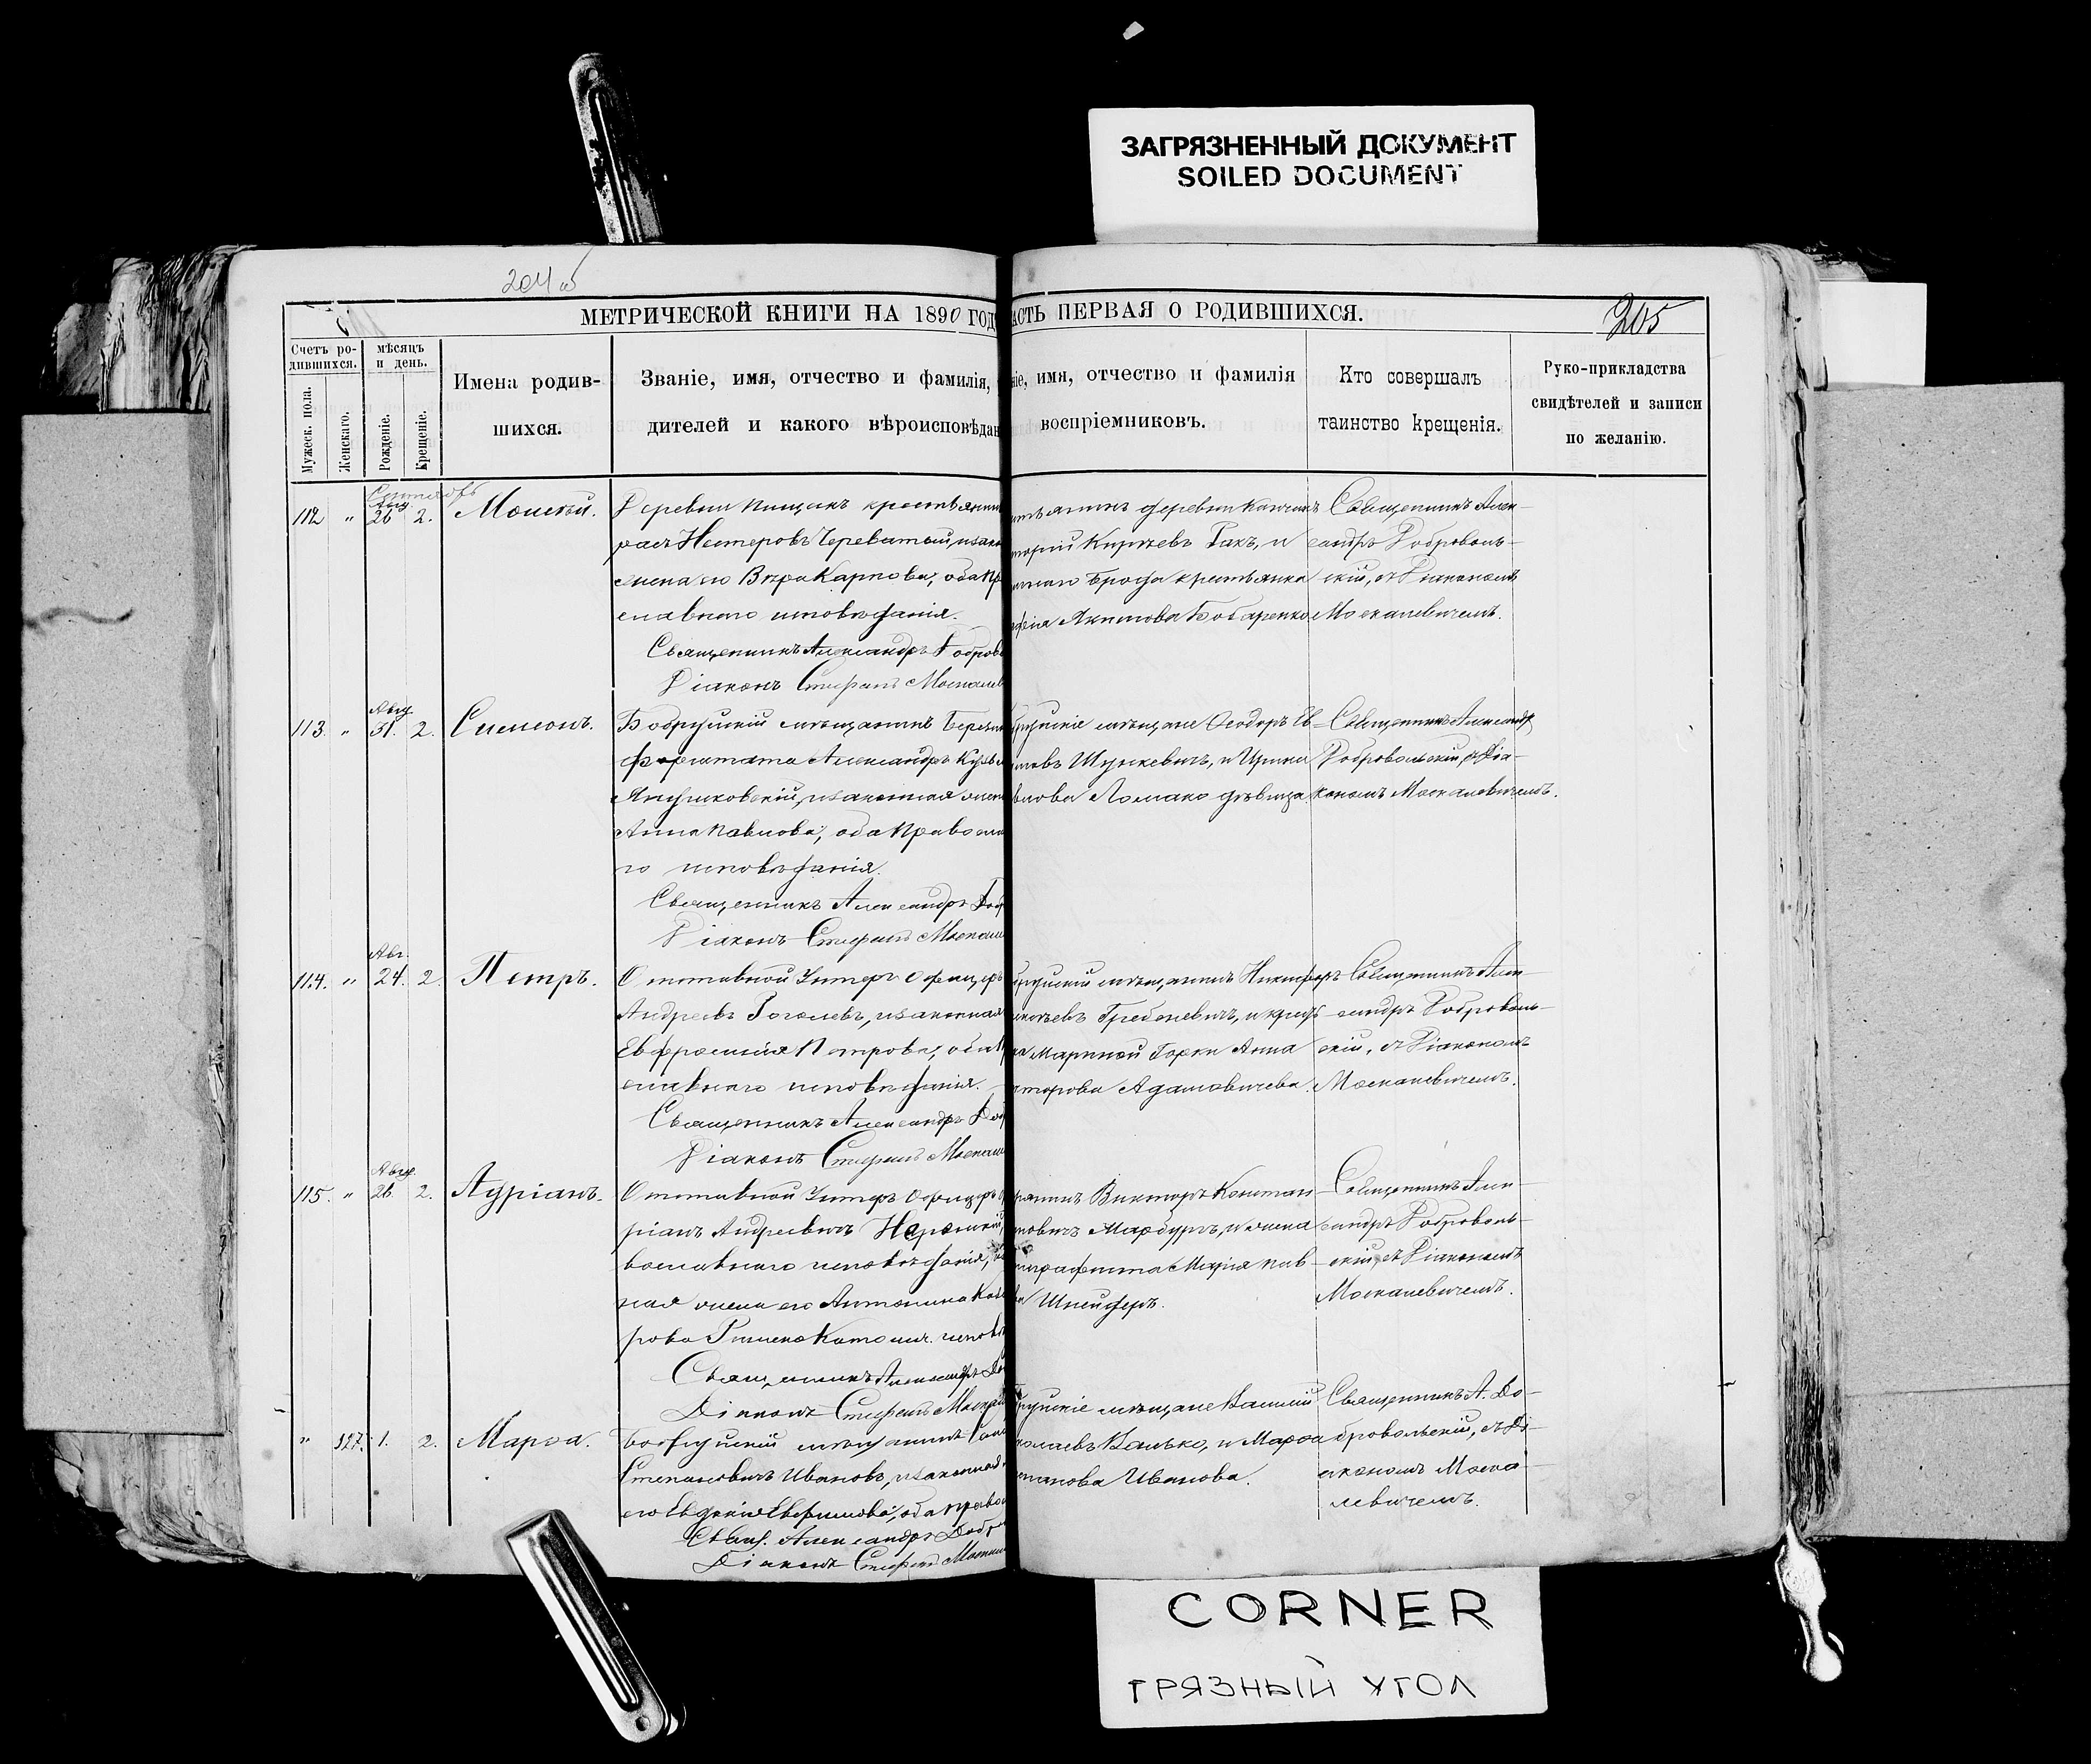 ЗАГРЯЗНЕННЫЙ ДОКУМЕНТ
SOILED DOCUMENT
204 об
205
МЕТРИЧЕСКОЙ КНИГИ НА 1890 ГОД
АСТЬ ПЕРВАЯ О РОДИВШИХСЯ.
Счетъ ро-
дившихся.
Мужеск. пола.
Женскаго.
мѣсяцъ
и день.
Рожденіе.
Крещеніе.
Имена родив-
шихся.
Званіе, имя, отчество и фамилія,
дителей и какого вѣроисповѣдан
ніе, имя, отчество и фамилія
воспріемниковъ.
Кто совершалъ
таинство крещенія.
Руко-прикладства
свидѣтелей и записи
по желанію.
Сентябрь
Авг.
112 " 26 2. Моисей.
Деревни Пищакъ крестьянин
Нестеровъ Череватый, и закон
жена его Вѣра Карпова, оба пр
славнаго исповѣданія.
Священникъ Александръ Добров
Діаконъ Стефанъ Москалев
деревни
Кирѣевъ Гакъ, и
Броды крестьянка
Якимова Бондаренко
Священникъ Алек-
сандръ Доброволь-
скій, съ Діакономъ
Москалевичемъ.
Авг.
113. " 31. 2. Симеонъ.
Бобруйскій мѣщанинъ
Александръ
и законная жена
Анна Павлова, оба Правосла
го исповѣданія.
Священникъ Александръ Доб
Діаконъ Стефанъ Москале
бруйскіе мѣщане Ѳеодоръ Ев-
Шушкевичъ, и Ирина
влова Ломако дѣвица
Священникъ Александръ
Добровольскій, съ Діа-
кономъ Москалевичемъ.
Авг.
114. " 24. 2. Петръ.
Отставной Унтеръ Офицеръ
Андреевъ Гоголевъ, и законная
Евфросинія Петрова, оба Пр
славнаго исповѣданія.
Священникъ Александръ Доб
Діаконъ Стефанъ Москале
бруйскій мѣщанинъ Никифоръ
Гребеневичъ, и крест-
Горки Анна
Адамовичева.
Священникъ Алек-
сандръ Доброволь-
скій, съ Діакономъ
Москалевичемъ.
Авг.
115. " 26. 2. Адріанъ.
Отставной Унтеръ Офицеръ
ріанъ Андреевичъ
вославнаго исповѣданія,
ная жена его Антонина
рова Римско Катол. исповѣ
Священникъ Александръ До
Діаконъ Стефанъ Москале
Викторъ Констан-
новичъ Марбургъ, и жена
Марія Пав-
ва Шнейдеръ.
Священникъ Алек-
сандръ Доброволь-
скій, съ Діакономъ
Москалевичемъ.
" 127. 1. 2. Марѳа.
Бобруйскій мѣщанинъ
Степановичъ Ивановъ, и законная
его Евдокія Ефимова, оба право
Свящ. Александръ Добр
Діаконъ Стефанъ Москале
бруйскіе мѣщане Василій
колаевъ Ванько, и Марѳа
Иванова.
Священникъ А. До-
бровольскій, съ Ді-
акономъ Моска-
левичемъ.
CORNER
ГРЯЗНЫЙ УГОЛ